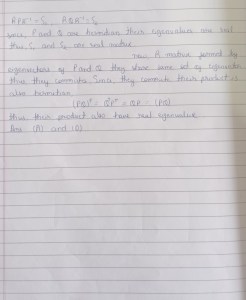 RPR⁻¹ = S₁, RQR⁻¹ = S₂
P and Q are hermitian their eigenvalues are real
thus S₁ and S₂ are real matrix
now R matrix formed by
eigenvectors of P and Q they share same set of eigenvectors
thus they commute. Since they commute their product is
also hermitian.
(PQ)† = Q†P† = QP = (PQ)
thus their product also have real eigenvalue
(A) and (D)